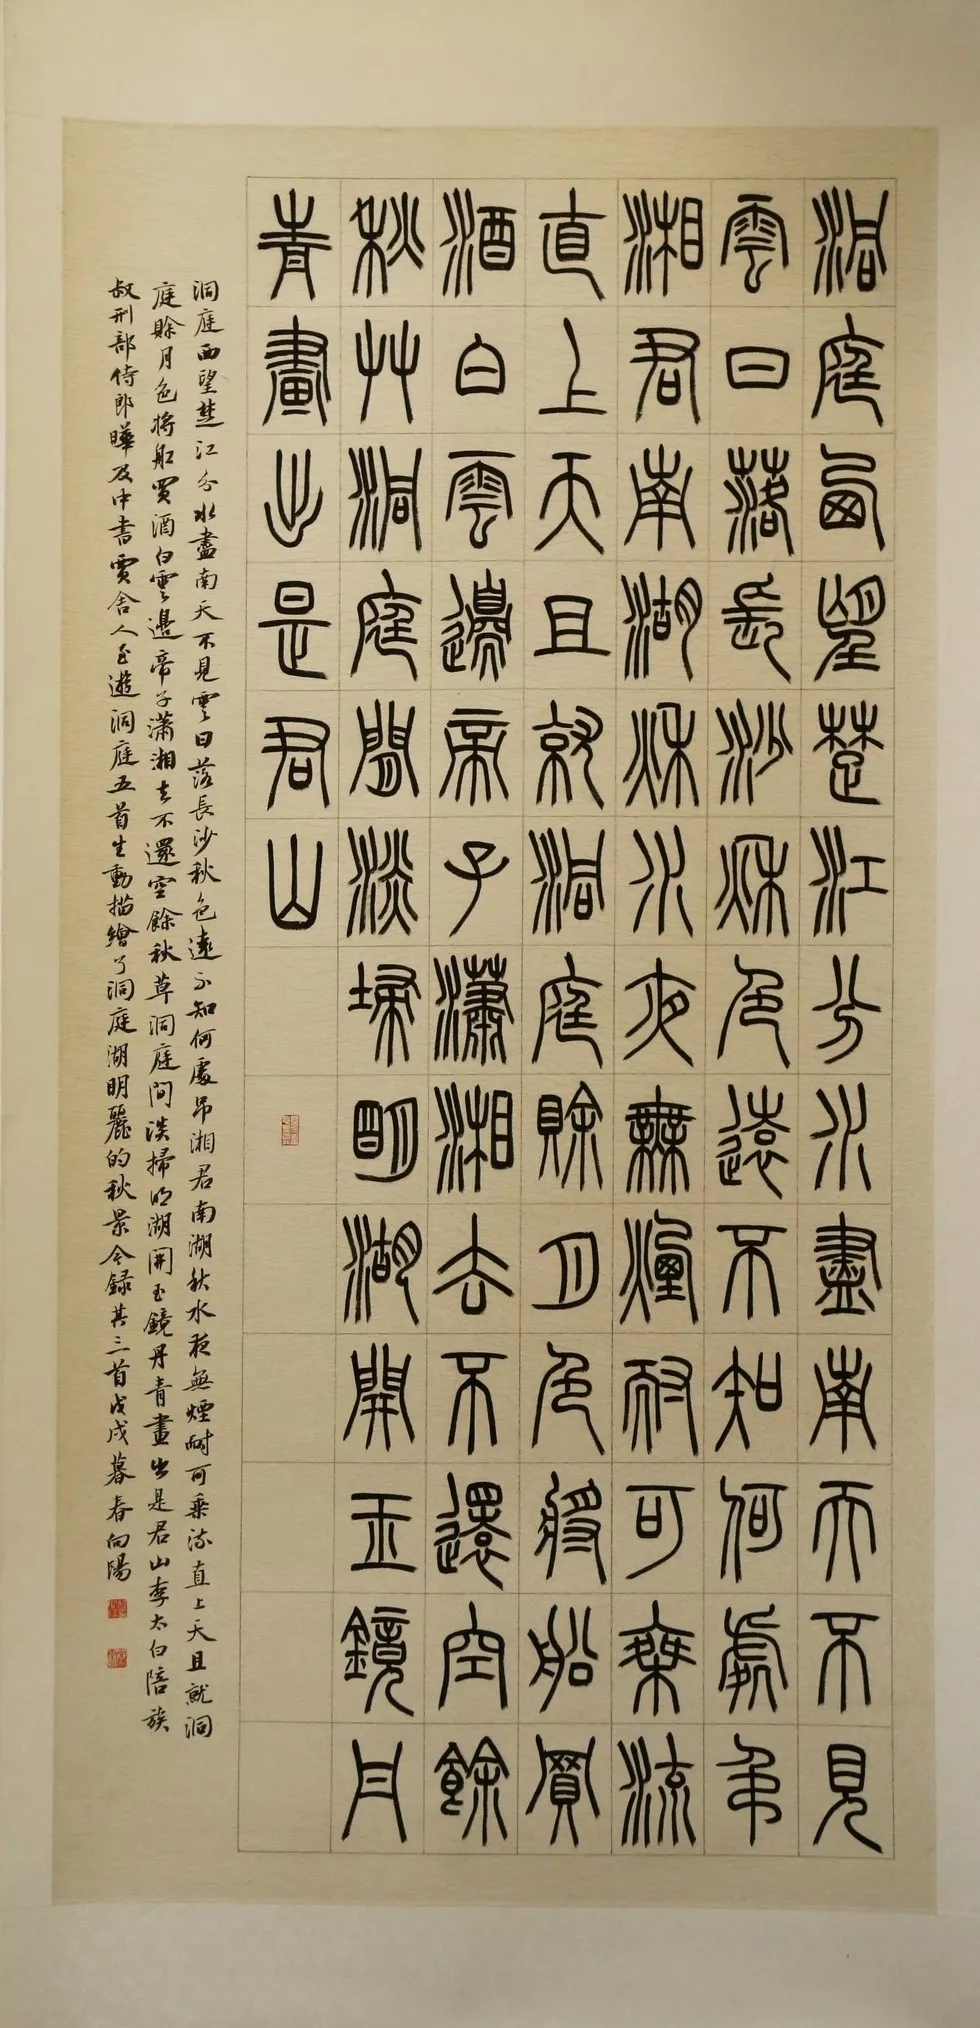 洞庭西望楚江分水盡南天不見
雲日落長沙秋色遠不知何處弔
湘君南湖秋水夜無煙耐可乘流
直上天且就洞庭賒月色將船買
酒白雲邊帝子瀟湘去不還空餘
秋草洞庭間淡埽明湖開玉鏡丹
青畫出是君山
洞庭西望楚江分水盡南天不見雲日落長沙秋色遠不知何處吊湘君南湖秋水夜無煙耐可乘流直上天且就洞
庭賒月色將船買酒白雲邊帝子瀟湘去不還空餘秋草洞庭間淡掃明湖開玉鏡丹青畫出是君山李太白陪族
叔刑部侍郎曄及中書賈舍人至遊洞庭五首生動描繪了洞庭湖明麗的秋景今録其三首戊戌暮春向陽